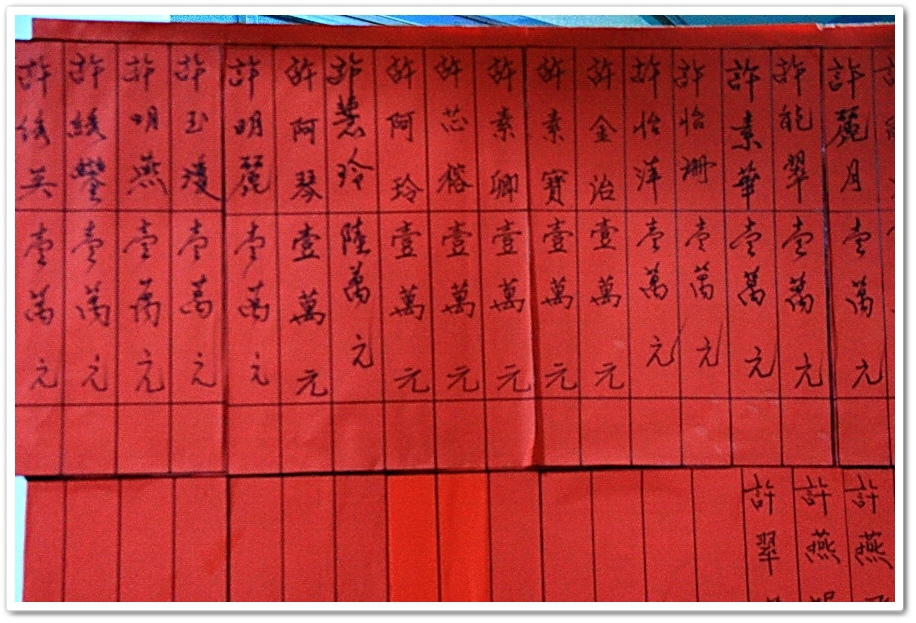 許麗月壹萬元
許能翠壹萬元
許素華壹萬元
許怡珊壹萬元
許怡萍壹萬元
許金治壹萬元
許素寶壹萬元
許素卿壹萬元
許芯榕壹萬元
許阿玲壹萬元
許慧玲陸萬元
許阿琴壹萬元
許明麗壹萬元
許玉 壹萬元
許明燕壹萬元
許綉鑾壹萬元
許綉英壹萬元
許燕
許燕
許翠